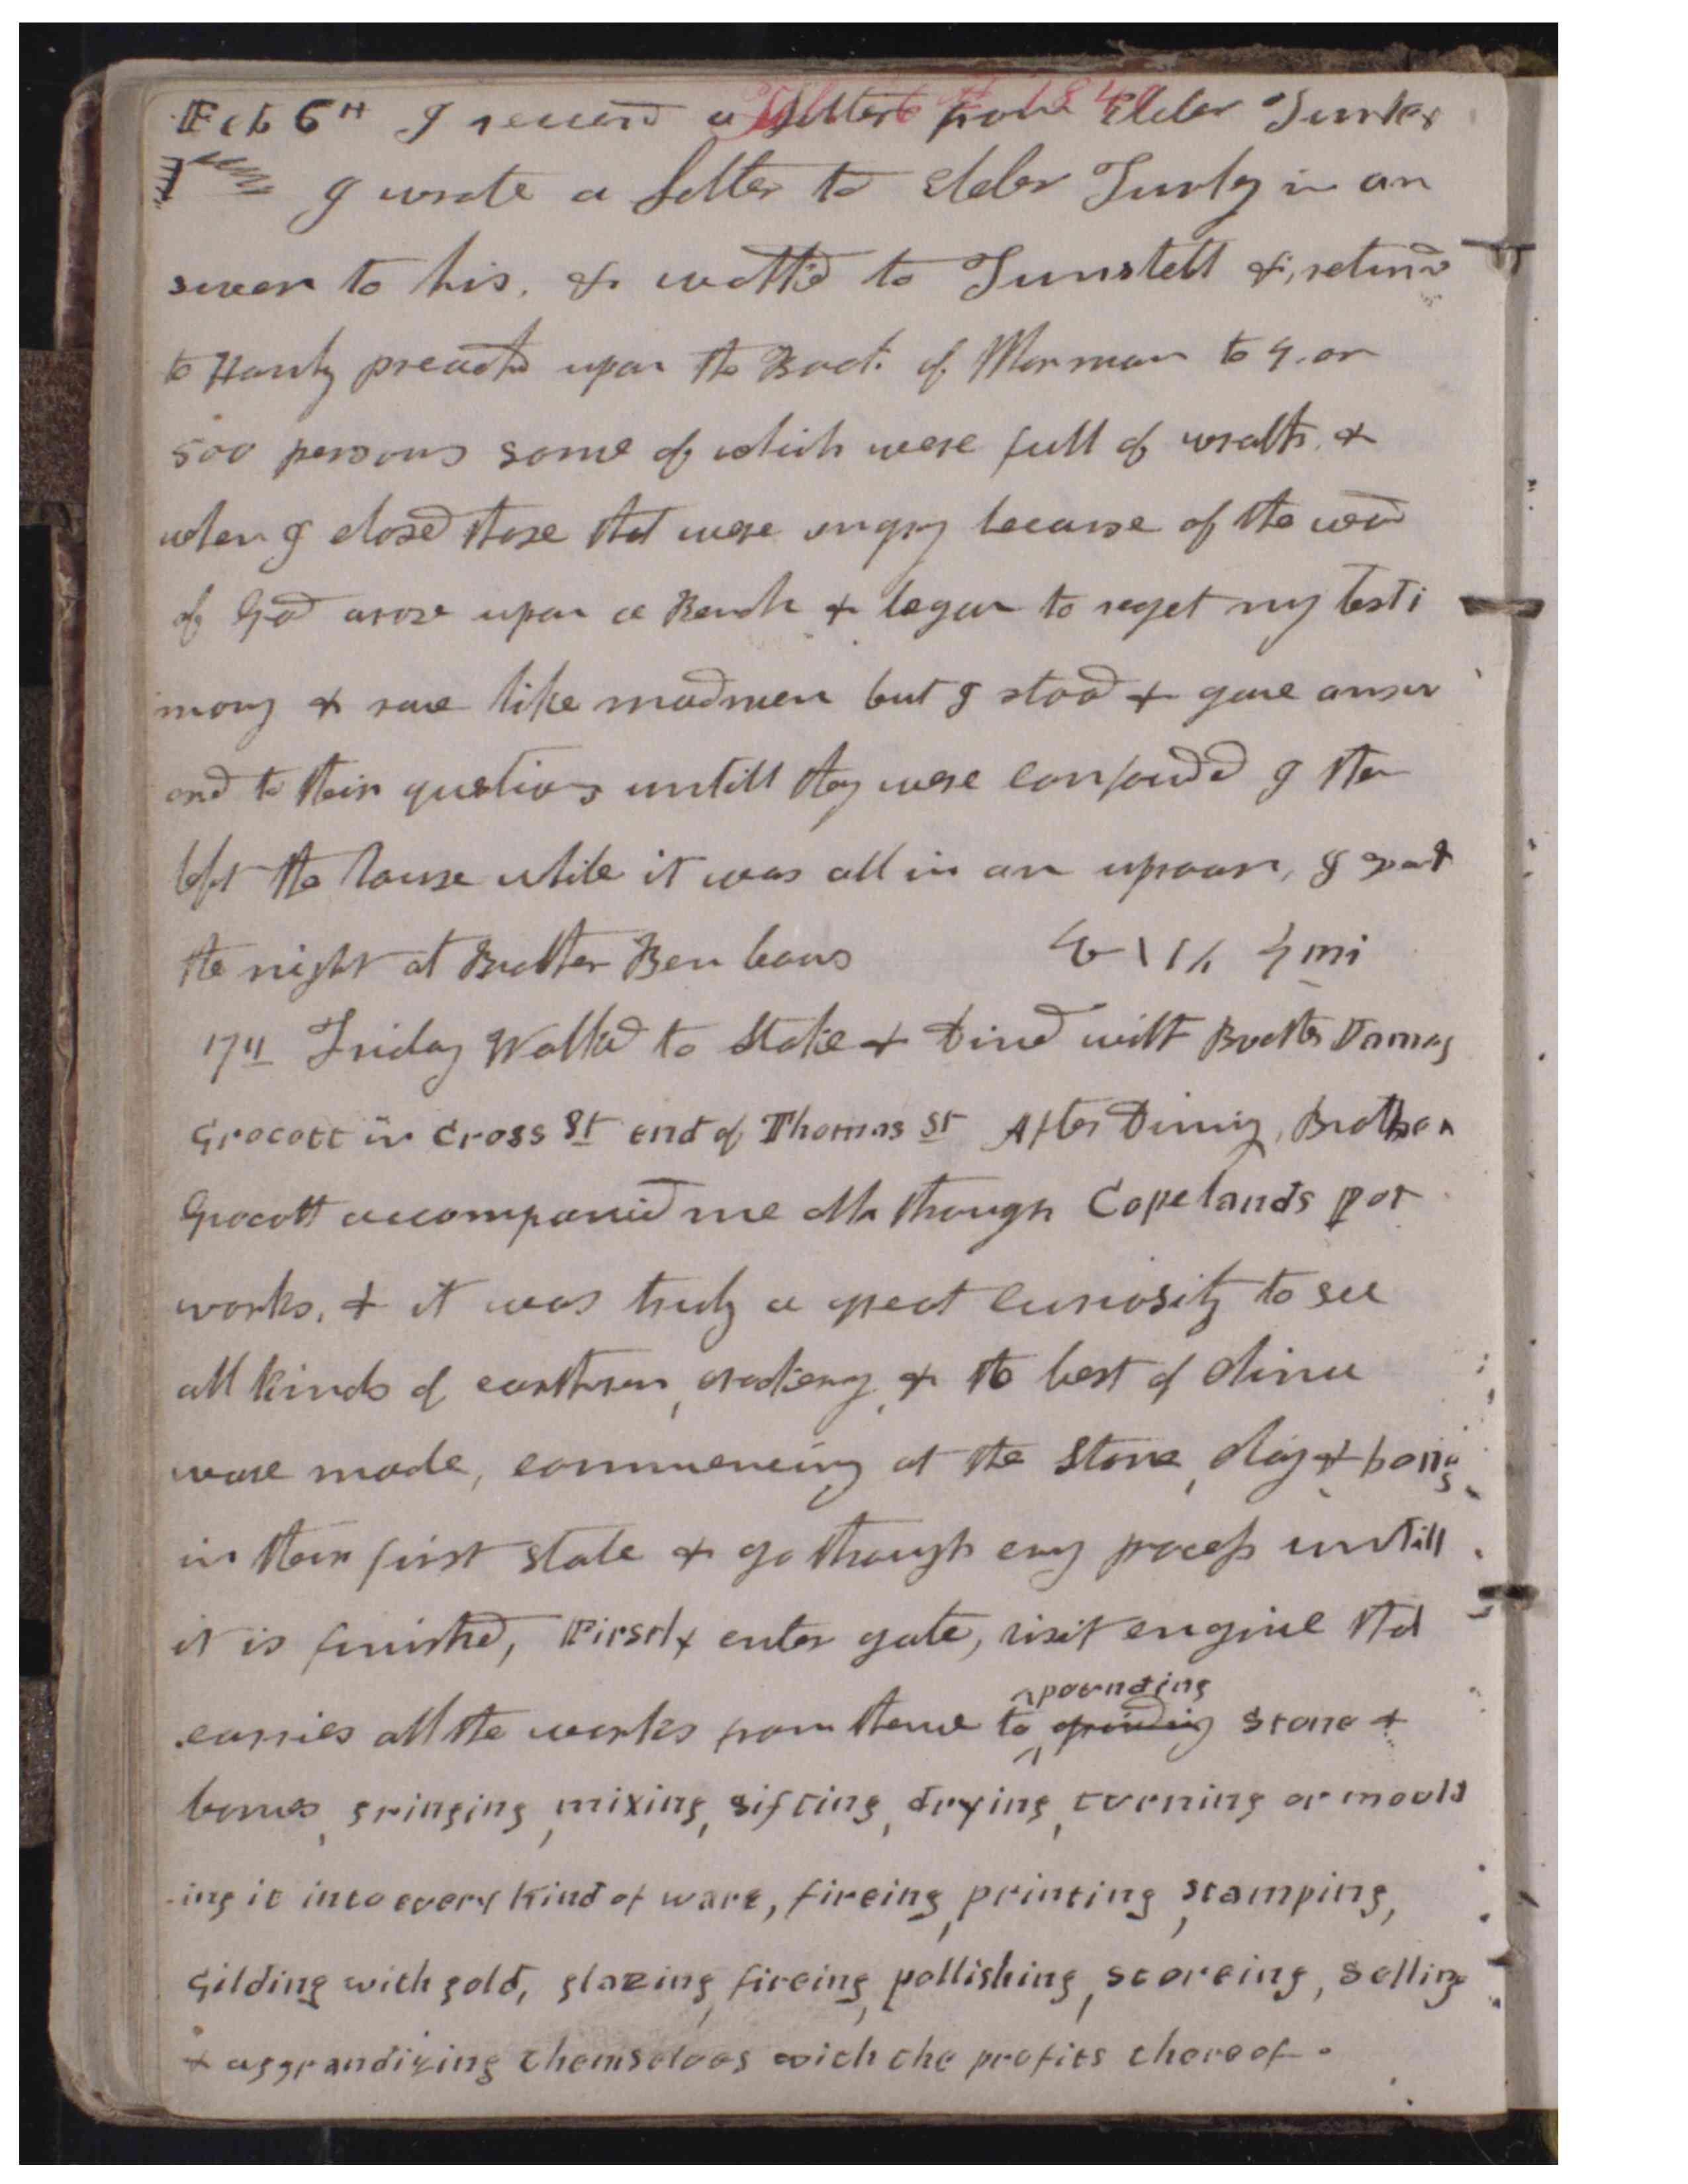 Feb 6th 1840
Feb 6th I receivd a letter from Elder Turley
I wrote a letter to Elder Turley in an
swer to his. & walked to Tunstell & returnd
to Hanly preachd upon the Book of Mormon to 4. or
500 persons some of which were full of wrath. &
when I closed those that were angry because of the word
of God arose upon a Bench & began to reject my testi
mony & rave like madmen but I stood & gave answer
and to their questions untill they were confoundd I then
left the house while it was all in an uproar, I spent
the night at Brother Benbows 4 mi
7th Friday Walkd to Stoke & Dined with Brother
Grocott in Cross St end of Thomas St After Dining, Brother
Grocott accompanied me all through Copelands pot
works, & it was truly a great curiosity to see
all kinds of earthren, crockery, & the best of china
ware made, commencing at the Stone, clay & bones
in their first state & go through evry process untill
it is finished, First, enter gate, visit engine that
carries all the works from thence to grinding pounding stone &
bones, grinding, mixing, sifting, drying, turning or mould
-ing it into every kind of ware, fireing, printing, stamping,
Gilding with gold, glazing, fireing, pollishing, scoreing, Selling
& aggrandizing themselves with the profits thereof.